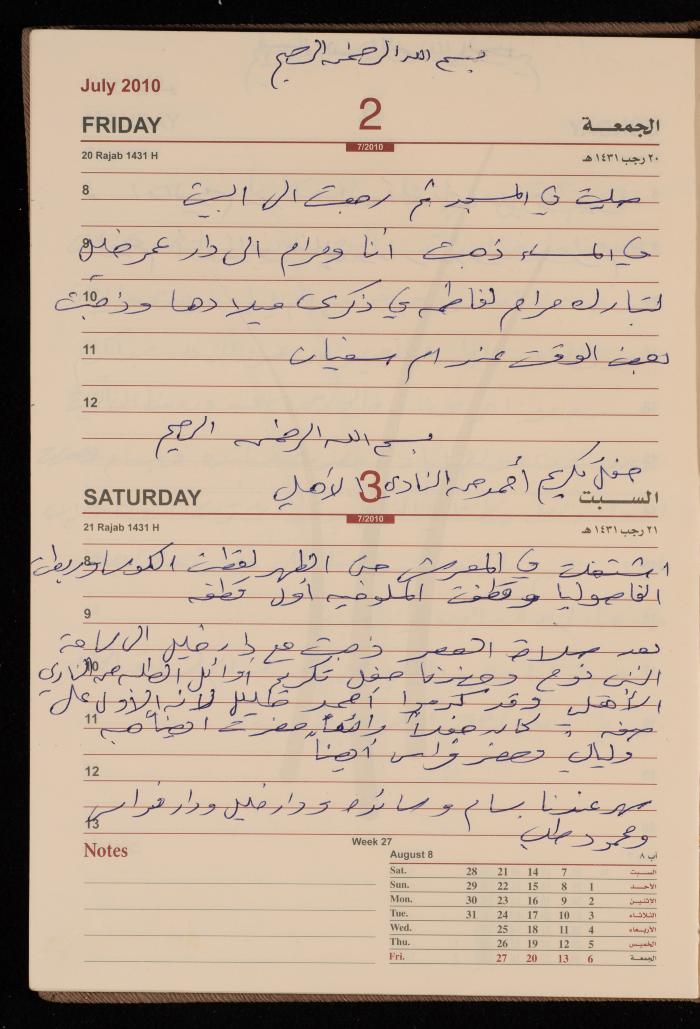 بسم الله الرحمن الرحيم
July 2010
FRIDAY 2 الجمعة
20 Rajab 1431 H 7/2010 ٢٠ رجب ١٤٣١ هـ
8 صليت في المسجد ثم رجعت الى البيت
9 في المساء ذهبت أنا ومرام الى دار عمر خليل
10 لتبارك مرام لفاطمه في ذكرى ميلادها وذهبت
11 بعض الوقت عند ام سفيان
12
بسم الله الرحمن الرحيم
حفل تكريم أحمد من النادي الأهلي
SATURDAY 3 السبت
21 Rajab 1431 H 7/2010 ٢١ رجب ١٤٣١ هـ
8 اشتغلت في المعرش حتى الظهر لقطت الكوسا
الفاصوليا وقطفت الملوخيه أول قطفه
9
بعد صلاة العصر ذهبت مع دار خليل الى ساحة
10 النبي نوح وحضرنا حفل تكريم أوائل الطلبه من النادي
الأهلي وقد كرموا أحمد خليل لأنه الأول على
11 صفه كان حفلاً رائعاً حضرت أيضاً هبه
وليالي وحضر فراس أيضاً
12
سهر عندنا بسام وسائده ودار خليل ودار فراس
13
ومحمود طلب
Notes
Week 27
August 8 آب ٨
Sat. 28 21 14 7 السبت
Sun. 29 22 15 8 1 الأحد
Mon. 30 23 16 9 2 الاثنين
Tue. 31 24 17 10 3 الثلاثاء
Wed. 25 18 11 4 الأربعاء
Thu. 26 19 12 5 الخميس
Fri. 27 20 13 6 الجمعة